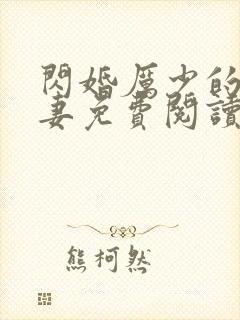 閃婚厲少的
妻免費閱讀
熊柯然